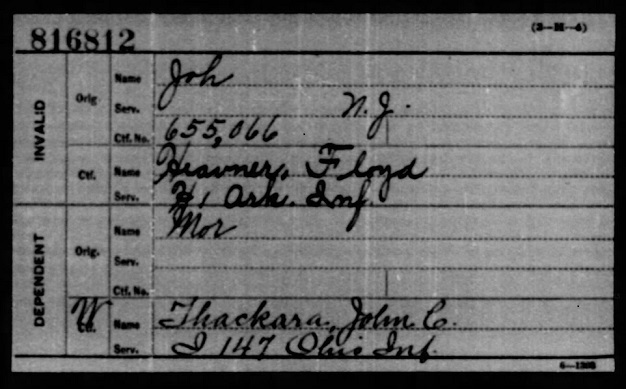 816812
(3—M—4)
INVALID
Orig.
Name Joh
Serv. N.J.
Ctf. No. 655,066
Ctf.
Name Heavner, Floyd
Serv. H, 1 Ark. Inf.
DEPENDENT
Orig.
Name Mor
Serv.
Ctf. No.
W
Ctf.
Name Thackara, John C.
Serv. I 147 Ohio Inf.